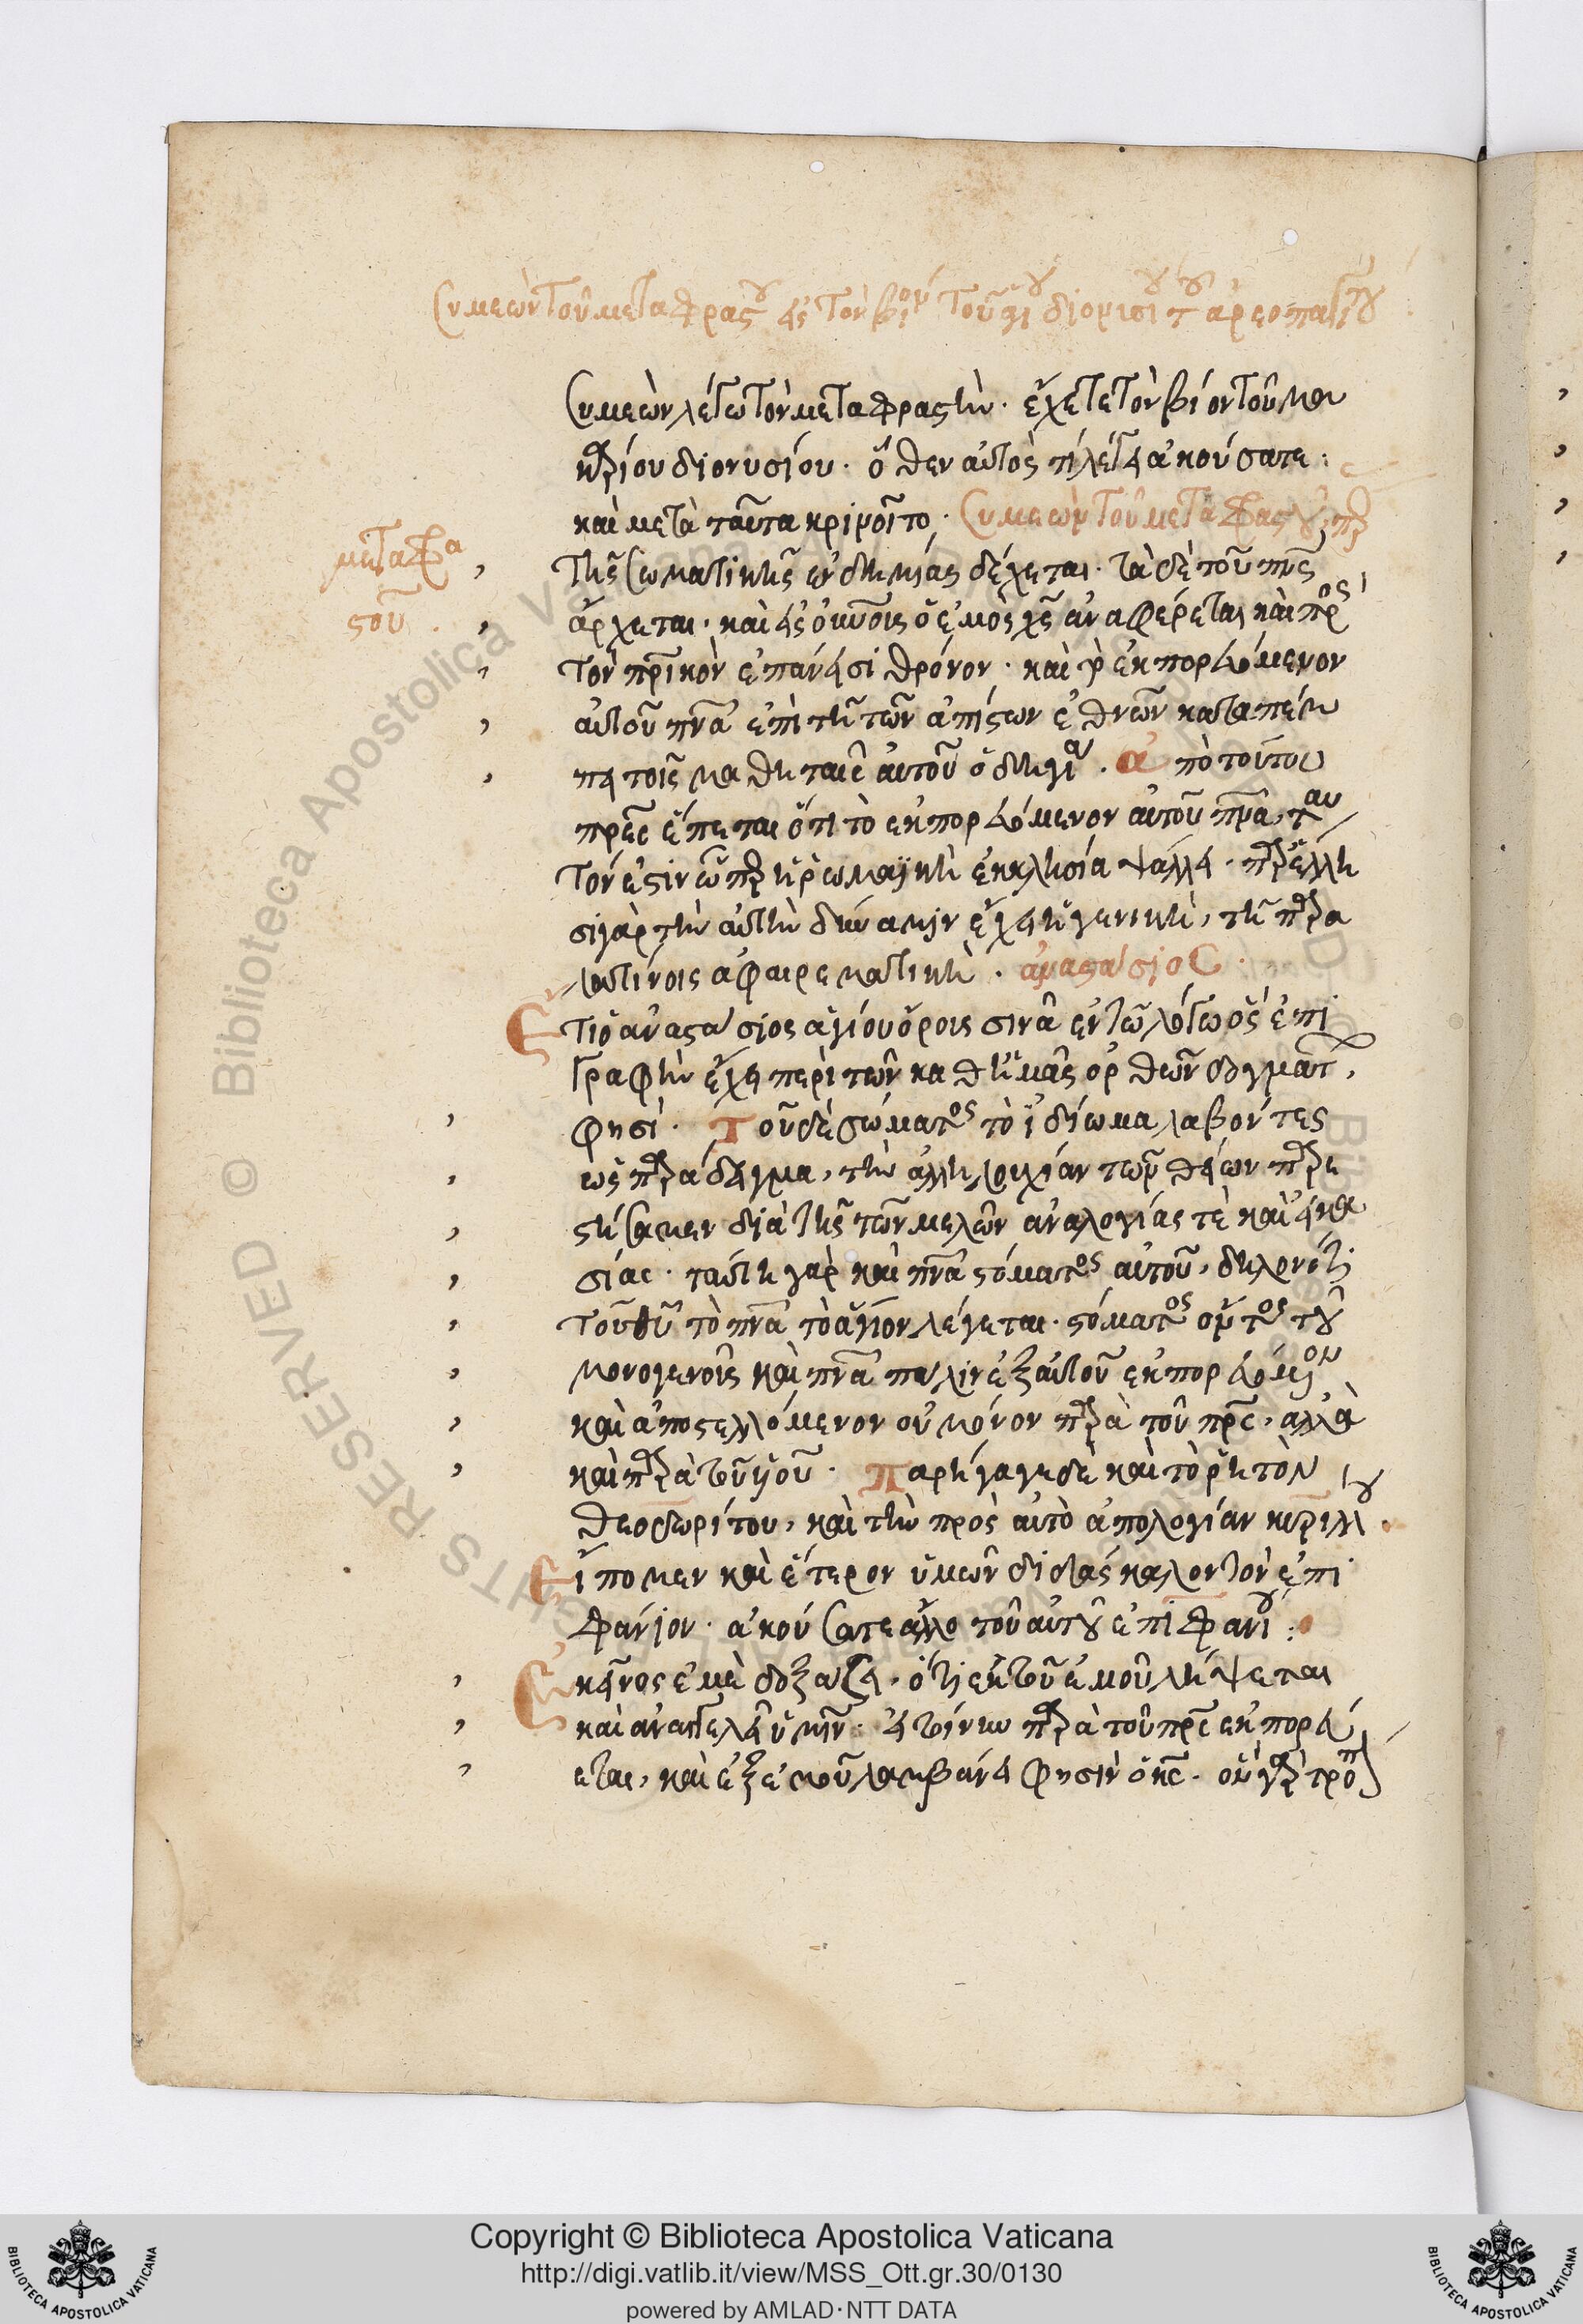 Συμεὼν τοῦ μεταφραστοῦ εἰς τὸν βίον τοῦ ἁγίου διονυσίου τοῦ ἀρεοπαγίτου
Συμεὼν λέγω τὸν μεταφραστὴν · ἔχετε τὸν βίον τοῦ μα
κρίου διονυσίου · ὅθεν αὐτὸς τί λέγει ἀκούσατε :
καὶ μετὰ ταῦτα κρίνοιτο · Συμεὼν τοῦ μεταφραστοῦ
μεταφρα
στοῦ
τῆς σωματικῆς ἐνδημίας δέχεται · τὰ δὲ τοῦ πνς
ἄρχεται · καὶ εἰς οὐνοὺς ὁ ἐμὸς χς ἀναφέρεται καὶ πρὸς
τὸν πρικὸν ἐπάνεισι θρόνον · καὶ τὸ ἐκπορευόμενον
αὐτοῦ πνα ἐπὶ τῇ τῶν ἀπίστων ἐθνῶν καταπέμ
πει τοῖς μαθηταῖς αὐτοῦ ὁδηγίᾳ . ἀπὸ τούτου
πρες ἕπεται ὅτι τὸ ἐκπορευόμενον αὐτοῦ πνα, ταυ
τόν ἐστιν ᾧ παρ ἡ ῥωμαϊκὴ ἐκκλησία ψάλλει · παρ ἕλλη
σι γὰρ τὴν αὐτὴν δύναμιν ἔχει ἡ γενικὴ, τῇ παρα
λατίνοις ἀφαιρεματικῇ . ἀναστάσιος ·
Ἔτι ὁ ἀναστάσιος ἁγίου ὄρους σινᾶ ἐν τῷ λόγω ὃς ἐπι
γραφὴν ἔχει περὶ τῶν καθ ἡμᾶς ὀρθῶν δογμάτ ,
φησὶ · Τοῦ δὲ σώματος τὸ ἰδίωμα λαβόντες
ὡς παράδειγμα, τὴν ἀλληλουχίαν τῶν θείων παρε
στήσαμεν διὰ τῆς τῶν μελῶν ἀναλογίας τὲ καὶ εἰκα
σίας · ταύτη γὰρ καὶ πνα στόματος αὐτοῦ, δηλονότι
τοῦ θυ τὸ πνα τὸ ἅγιον λέγεται · στόματος ὄντος τοῦ
μονογενοῦς καὶ πνα πάλιν ἐξ αὐτοῦ ἐκπορευόμενον
καὶ ἀποστελλόμενον οὐ μόνον παρὰ τοῦ πρς, ἀλλὰ
καὶ παρὰ τοῦ υἱοῦ · Παρήγαγε δὲ καὶ τὸ ῥητὸν
θεοδωρίτου, καὶ τὴν πρὸς αὐτὸ ἀπολογίαν κυρίλλου .
Εἴπομεν καὶ ἕτερον ὑμῶν διδάσκαλον τὸν ἐπι
φάνιον · ἀκούσατε ἄλλο τοῦ αὐτοῦ ἐπιφανίου :
Ἐκεῖνος ἐμὲ δοξάσει · ὅτι ἐκ τοῦ ἐμοῦ λήψεται
καὶ ἀναγγελεῖ ὑμῖν · εἰ τοίνυν παρὰ τοῦ πρς ἐκπορεύ
εται, καὶ ἐξ ἐμοῦ λαμβάνει φησὶν ὁ κς · ὃν γὰρ τρόπ
Copyright © Biblioteca Apostolica Vaticana
http://digi.vatlib.it/view/MSS_Ott.gr.30/0130
powered by AMLAD·NTT DATA